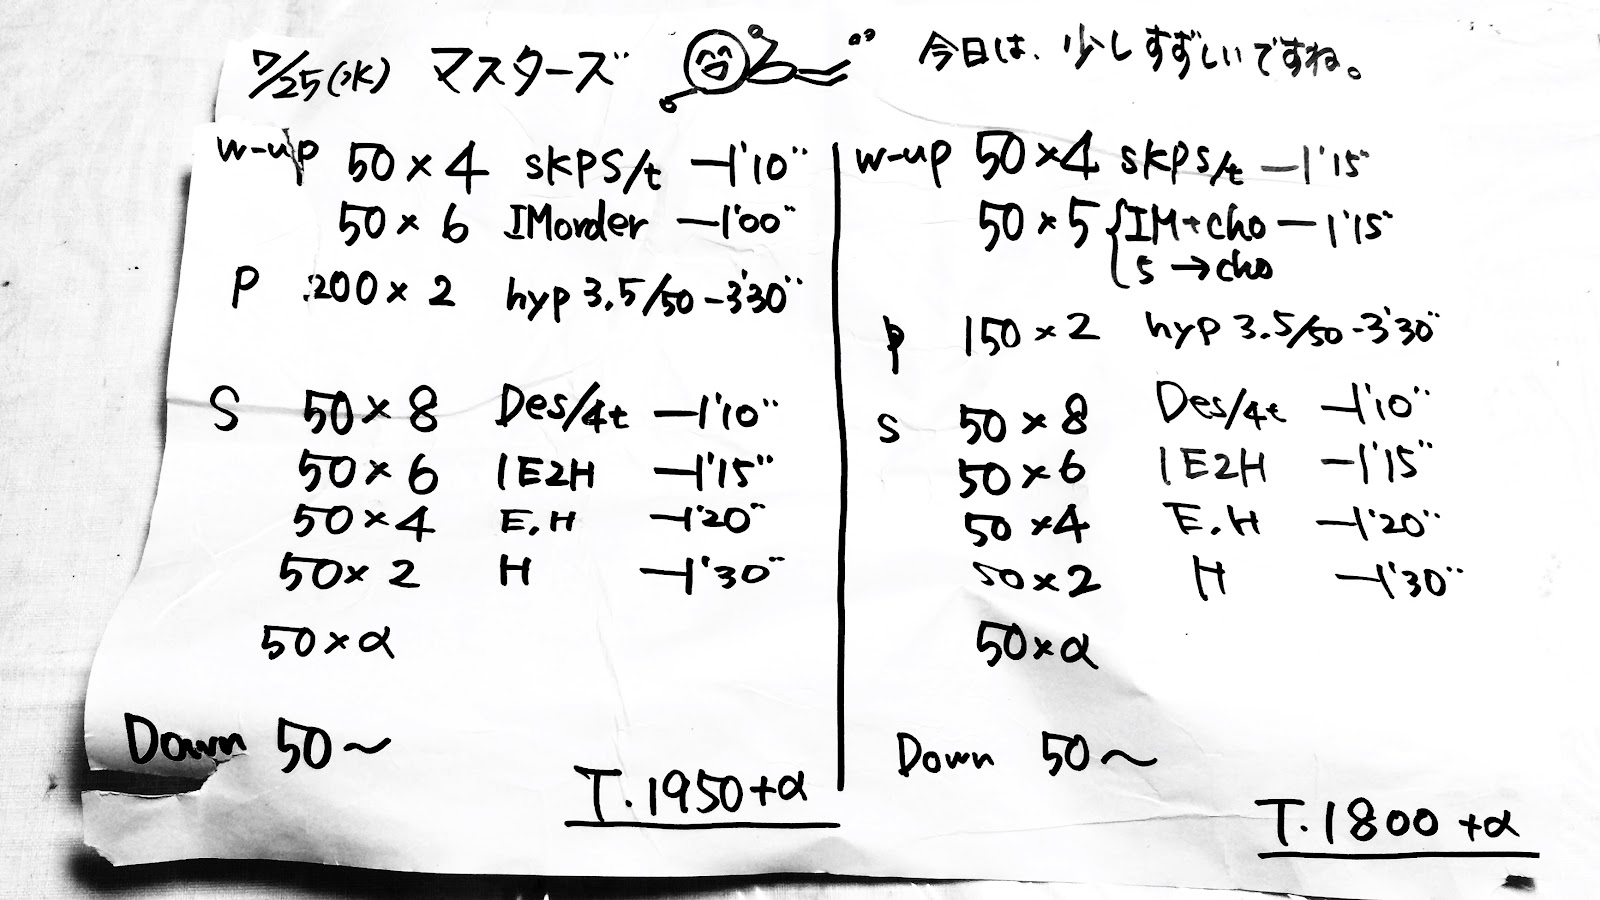 7/25(水) マスターズ 今日は、少しすずしいですね。
W-up 50×4 SKPS/t —1'10"
50×6 IMorder —1'00"
P 200×2 hyp 3.5/50 -3'30"
S 50×8 Des/4t —1'10"
50×6 1E2H —1'15"
50×4 E.H —1'20"
50×2 H —1'30"
50×α
Down 50〜
T.1950+α
W-up 50×4 SKPS/t —1'15"
50×5 {IM+cho —1'15"
5→cho
P 150×2 hyp 3.5/50 -3'30"
S 50×8 Des/4t —1'10"
50×6 1E2H —1'15"
50×4 E.H —1'20"
50×2 H —1'30"
50×α
Down 50〜
T.1800+α